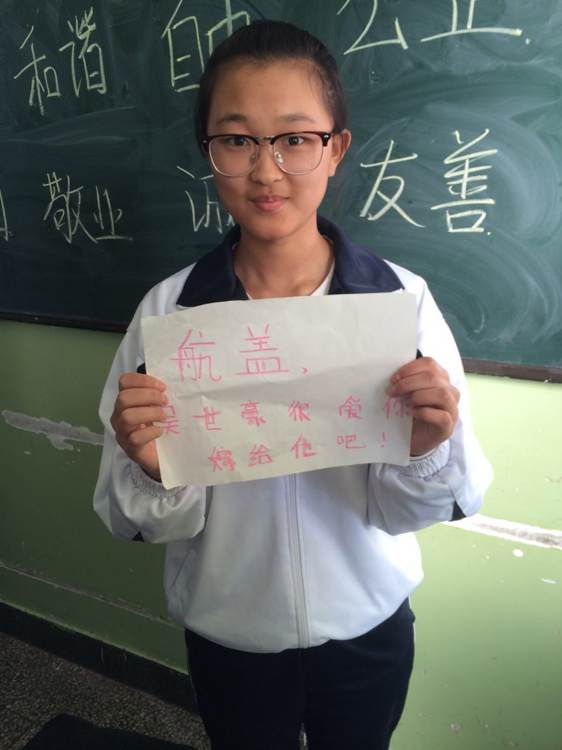 和谐 自由 公正
敬业 诚 友善
航盖,
吴世豪很爱你
嫁给他吧!